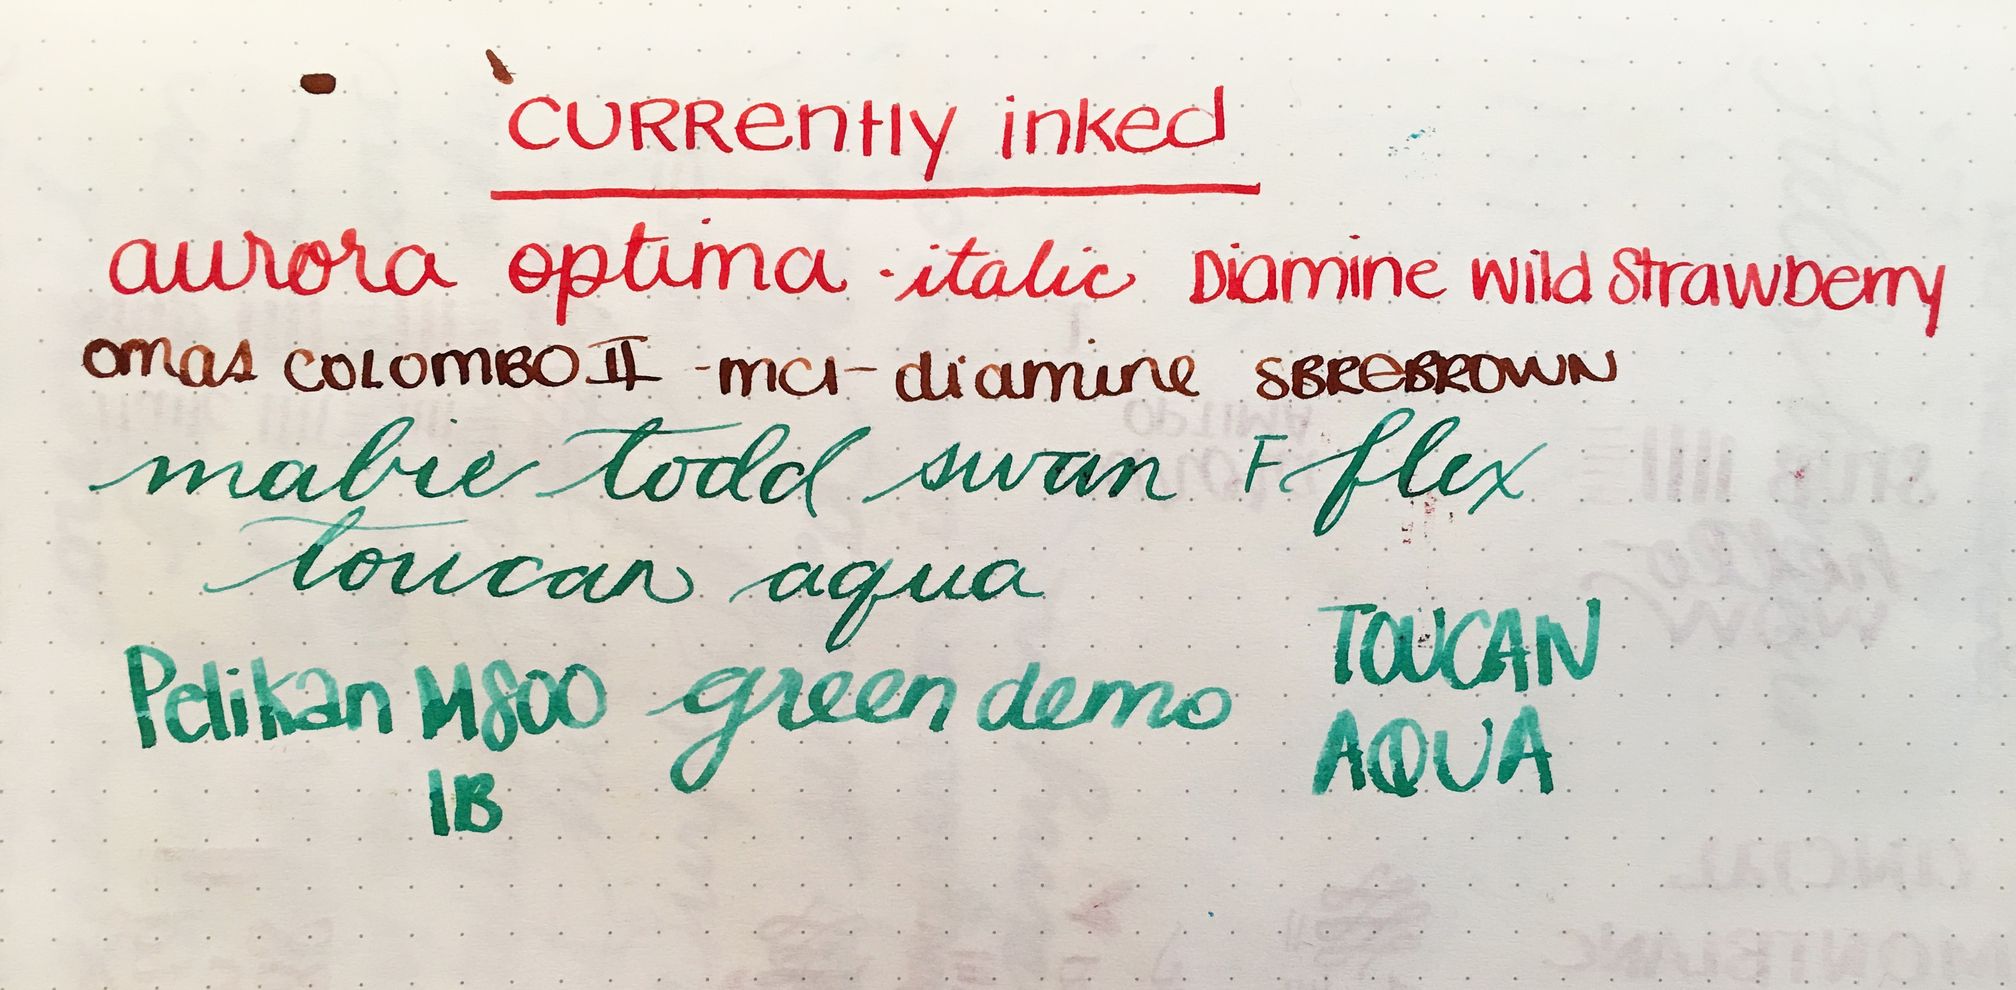 CURRently inked
aurora optima - italic Diamine Wild Strawberry
omas COLOMBO II - mci - diamine SBREBROWN
mabie todd swan F flex
toucan aqua
Pelikan M800 green demo TOUCAN
AQUA
IB